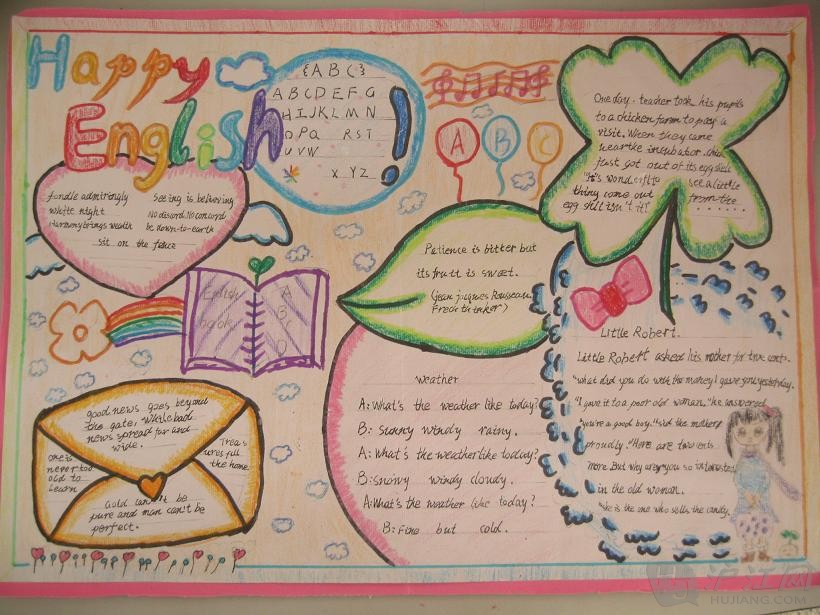 Happy
English!
{ABC}
ABCDEFG
HIJKLMN
OPQ RST
UVW
XYZ
A B C
One day. teacher took his pupils
to a chicken farm to pay a
visit. When they came
near the incubator.
just got out of its egg shell
"It's wonderful to see a little
thing come out from the
egg shell isn't it!
fondle admiringly
white night
Harmony brings wealth
Seeing is believing
No discord. No concord
be down-to-earth
sit on the fence
Patience is bitter but
its fruit is sweet.
(jean jacques Rousseau.
French thinker)
English
book
A
B
C
D
Little Robert.
Little Robert asked his mother for two cents.
"what did you do with the money I gave you yesterday.
"I gave it to a poor old woman." he answered
"you're a good boy." said the mother
proudly. "Here are two cents
more. But why are you so interested
in the old woman.
"she is the one who sells the candy.
Weather
A: What's the weather like today?
B: sunny windy rainy.
A: What's the weather like today?
B: snowy windy cloudy.
A: What's the weather like today?
B: Fine but cold.
good news goes beyond
the gate, while bad
news spread far and
wide.
one is
never too
old to
learn
Treas
ures fill
the home.
Gold can't be
pure and man can't be
perfect.
沪江网
HUJIANG.COM